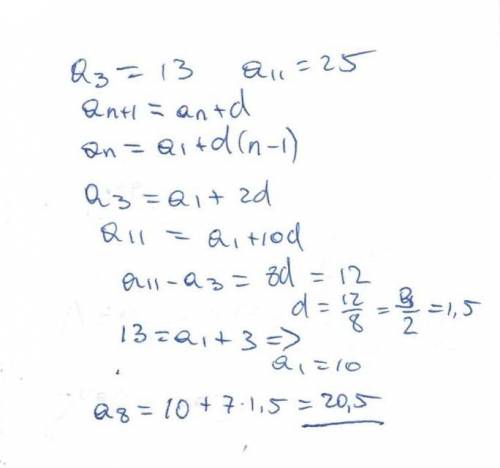 a₃ = 13 a₁₁ = 25
aₙ₊₁ = aₙ + d
aₙ = a₁ + d(n-1)
a₃ = a₁ + 2d
a₁₁ = a₁ + 10d
a₁₁ - a₃ = 8d = 12
d = 12/8 = 3/2 = 1,5
13 = a₁ + 3 =>
a₁ = 10
a₈ = 10 + 7·1,5 = 20,5